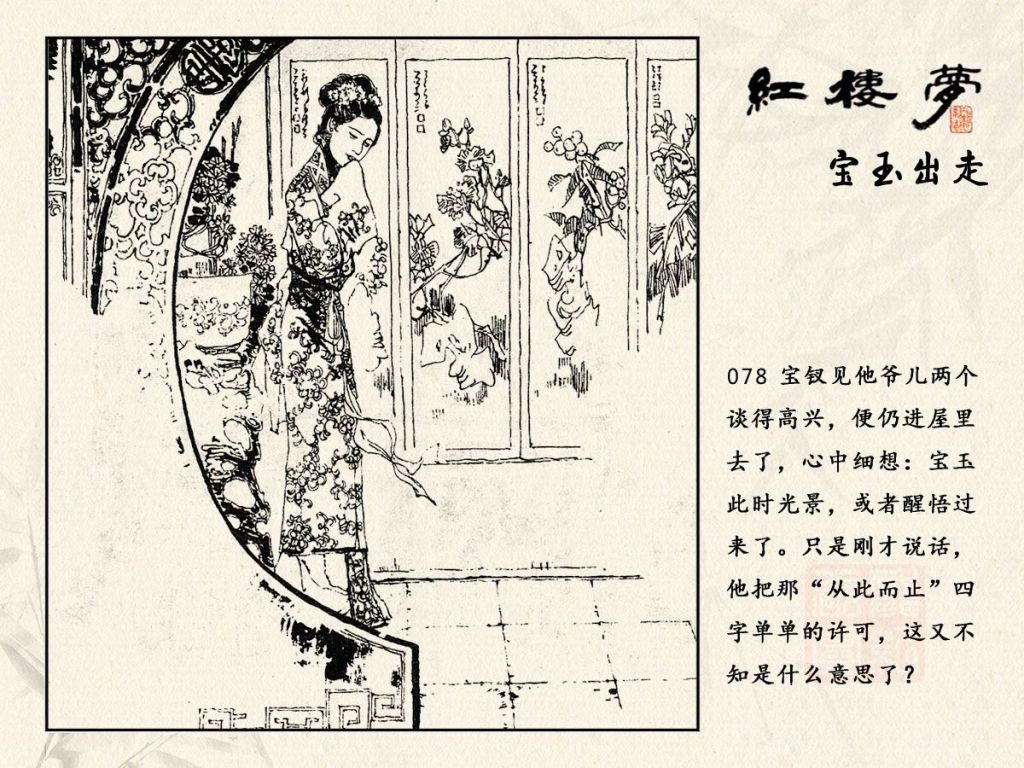 紅樓夢
宝玉出走
078 宝钗见他爷儿两个
谈得高兴，便仍进屋里
去了，心中细想：宝玉
此时光景，或者醒悟过
来了。只是刚才说话，
他把那“从此而止”四
字单单的许可，这又不
知是什么意思了？